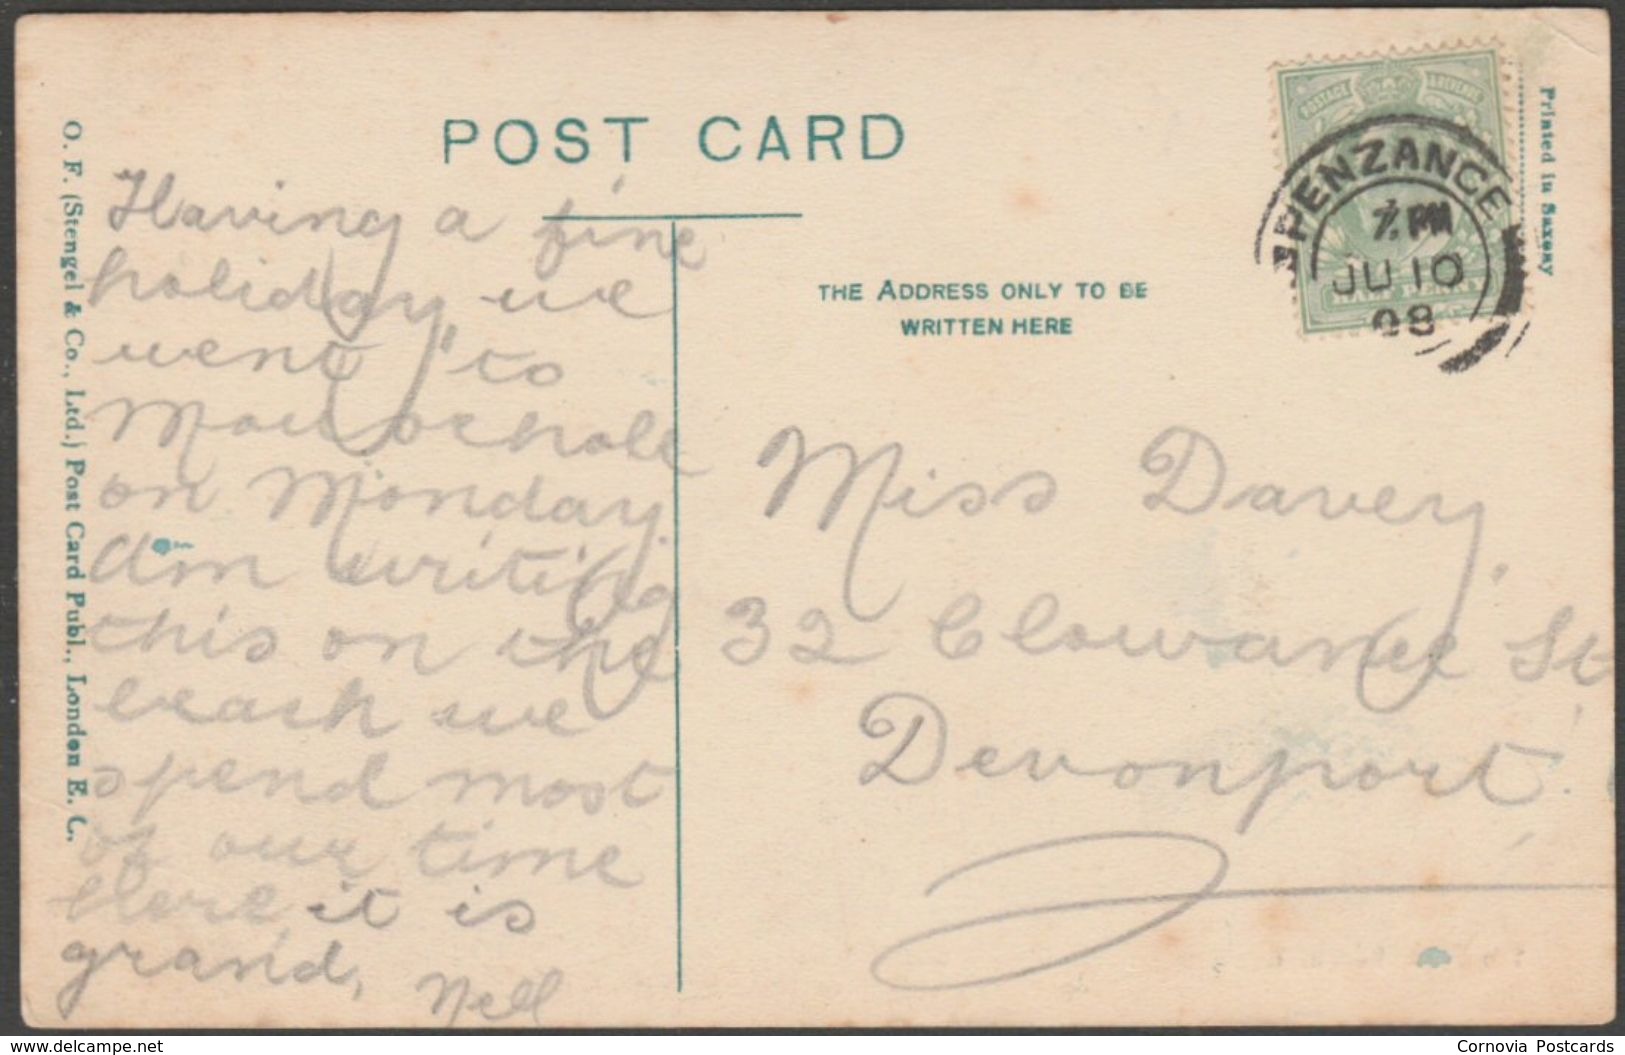 POST CARD
O. F. (Stengel & Co., Ltd.) Post Card Publ., London E. C.
Having a fine
holiday we
went to
Mousehole
on Monday.
am writing
this on the
beach we
spend most
of our time
Here it is
grand,
Nell
THE ADDRESS ONLY TO BE
WRITTEN HERE
POSTAGE REVENUE
HALF PENNY
PENZANCE
7 PM
JU 10
08
Printed in Saxony
Miss Davey.
32 Clowance St
Devonport.
delcampe.net
Cornovia Postcards